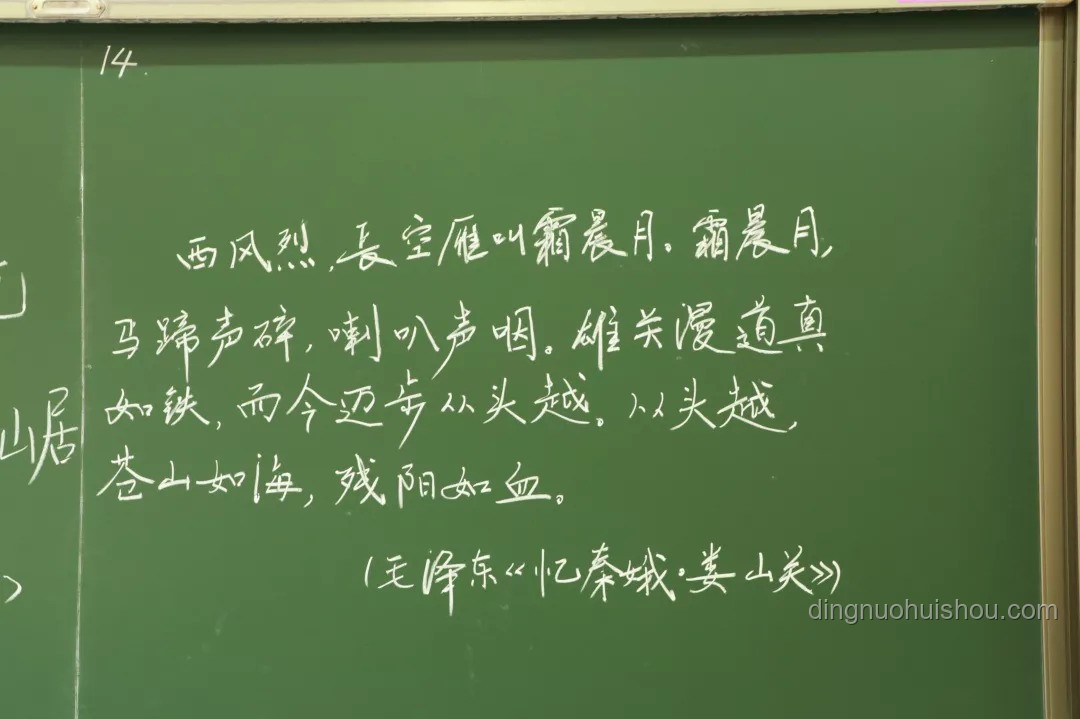 14.
西风烈,長空雁叫霜晨月。霜晨月,
马蹄声碎,喇叭声咽。雄关漫道真
如铁,而今迈步从头越。从头越,
苍山如海,残阳如血。
(毛泽东《忆秦娥·娄山关》)
山居
dingnuohuishou.com